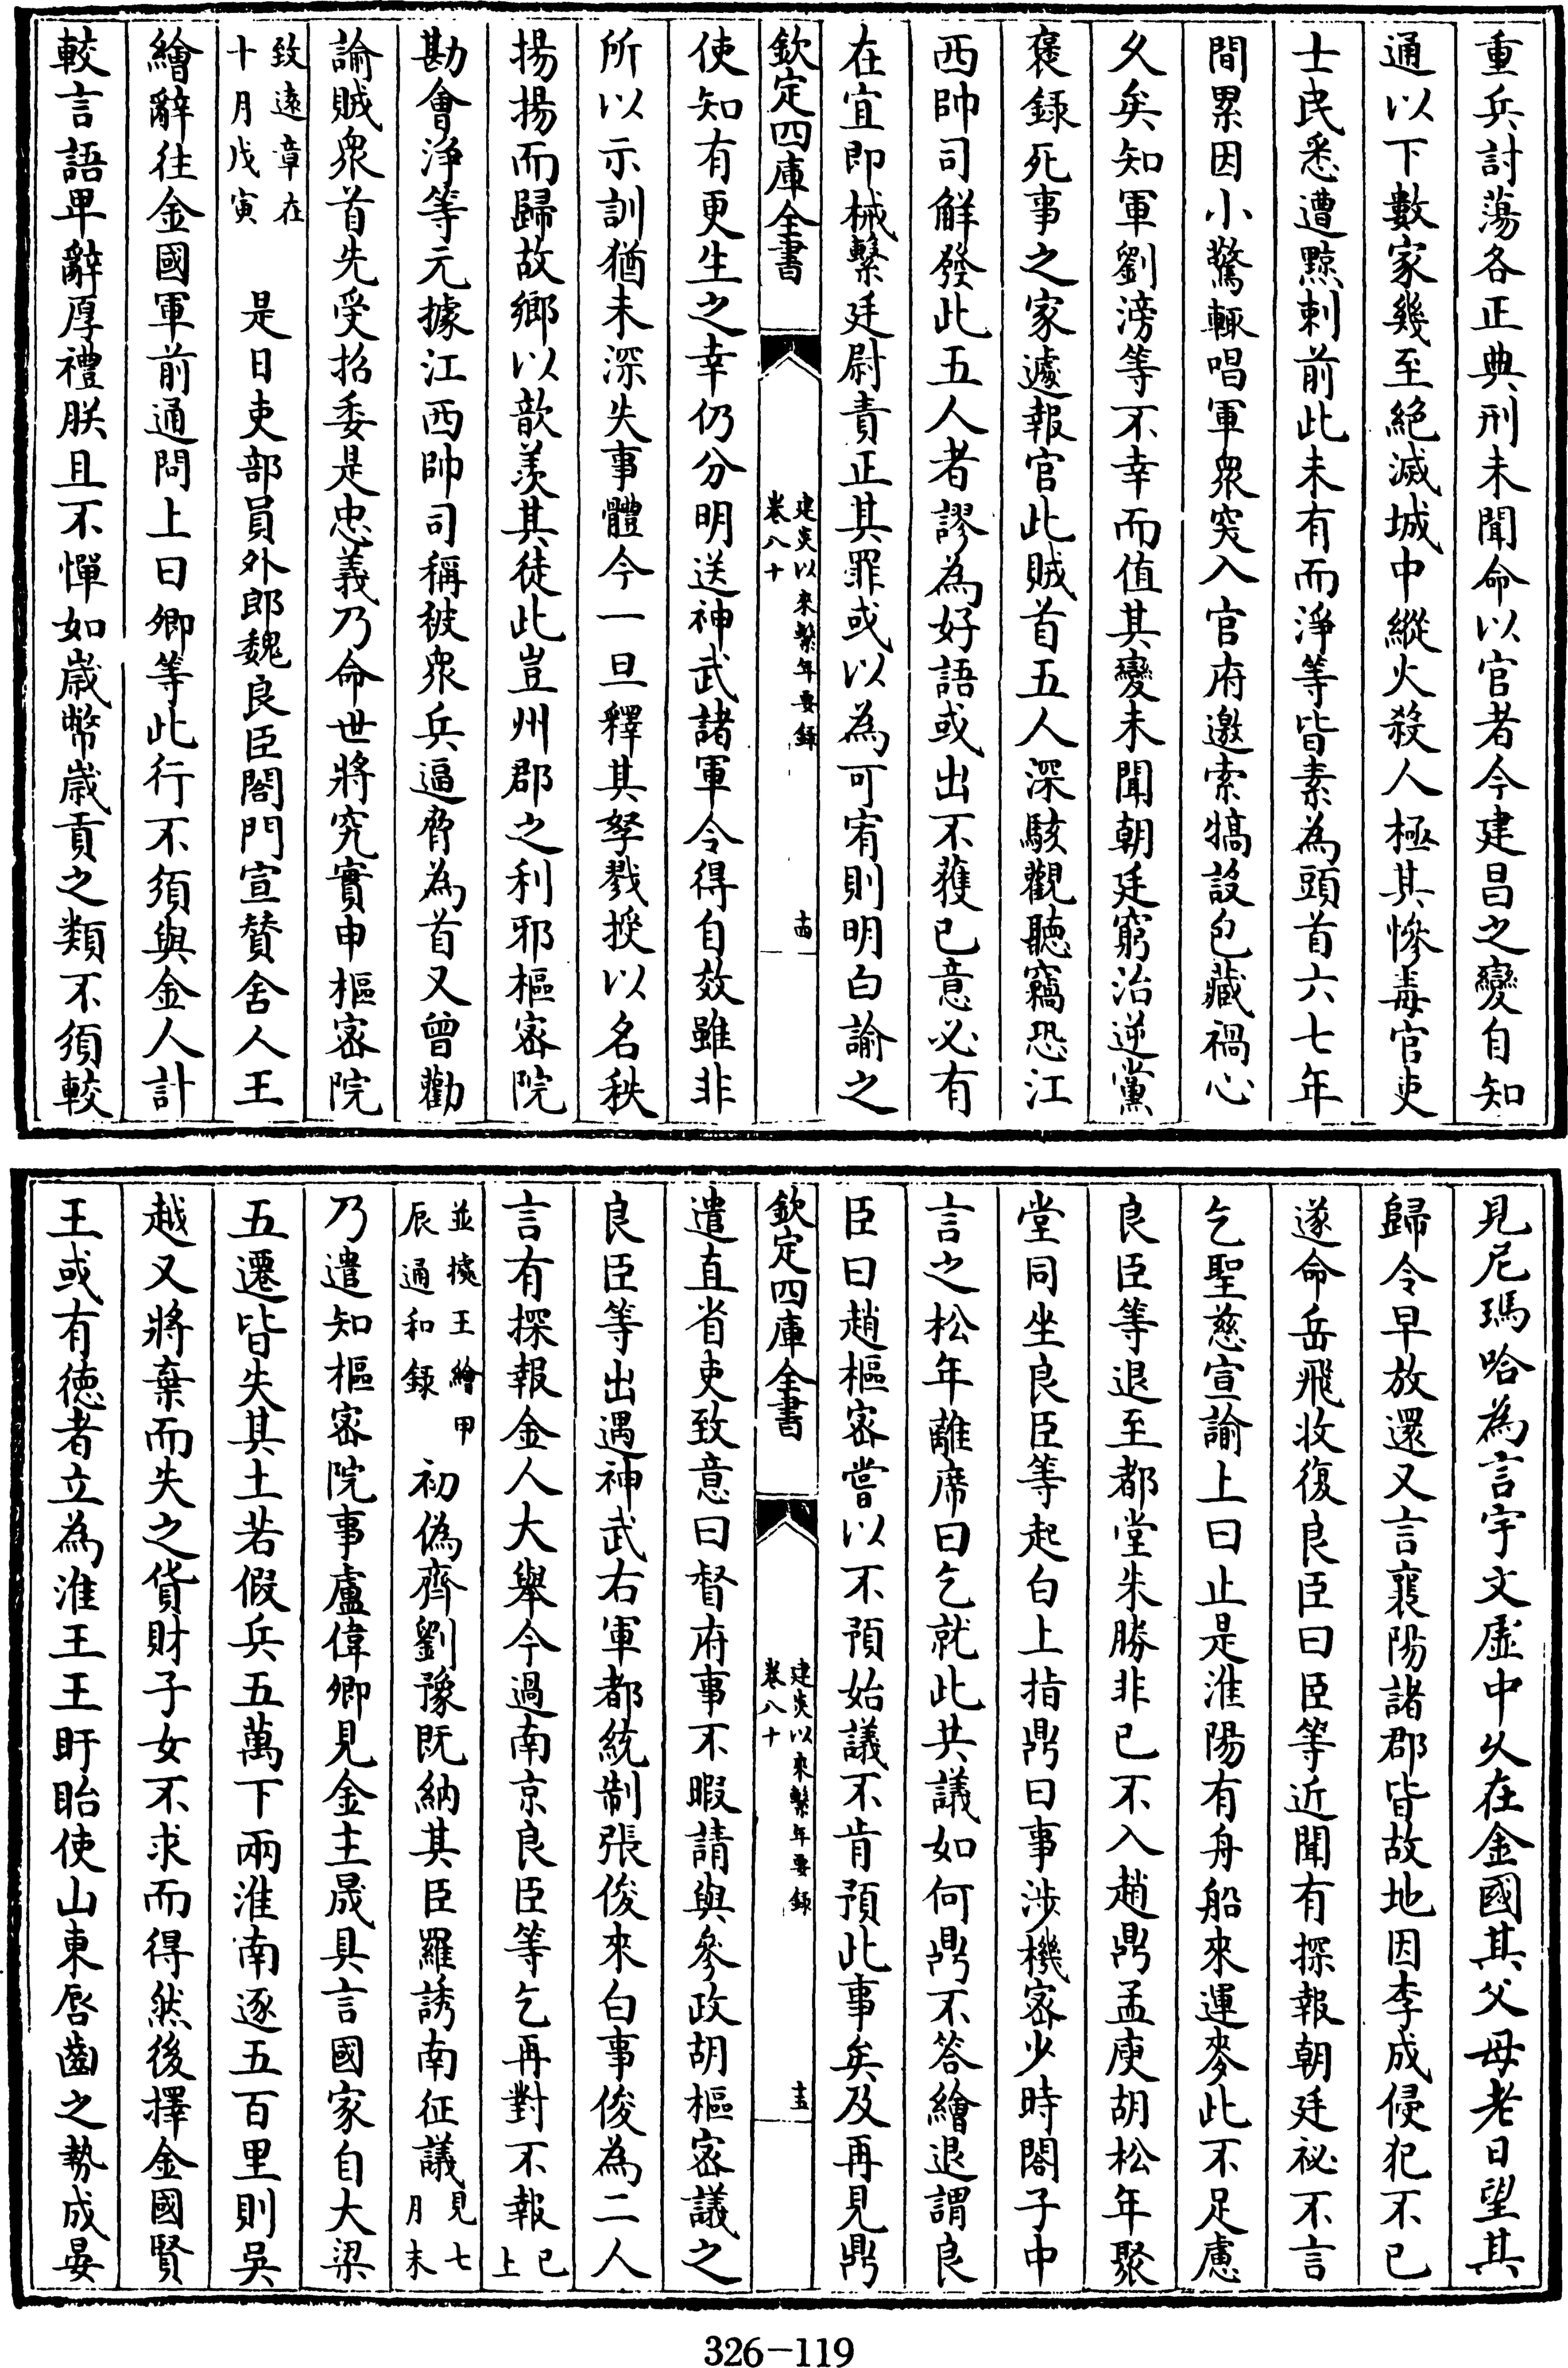 重兵討蕩各正典刑未聞命以官者今建昌之變自知
通以下數家幾至絕滅城中縱火殺人極其慘毒官吏
士民悉遭黥刺前此未有而淨等皆素為頭首六七年
間累因小驚輒唱軍衆突入官府邀索犒設包藏禍心
乆矣知軍劉滂等不幸而值其變未聞朝廷窮治逆黨
褒錄死事之家遽報官此賊首五人深駭觀聽竊恐江
西帥司解發此五人者謬為好語或出不獲已意必有
在宜即械繫廷尉責正其罪或以為可宥則明白諭之
欽定四庫全書
建炎以來繫年要録
卷八十
十四
使知有更生之幸仍分明送神武諸軍令得自效雖非
所以示訓猶未深失事體今一旦釋其孥戮授以名秩
揚揚而歸故鄉以歆羨其徒此豈州郡之利邪樞密院
勘會淨等元據江西帥司稱被衆兵逼脅為首又曾勸
諭賊衆首先受招委是忠義乃命世將究實申樞密院
致遠章在
十月戊寅
是日吏部員外郎魏良臣閤門宣贊舍人王
繪辭往金國軍前通問上曰卿等此行不須與金人計
較言語卑辭厚禮朕且不憚如歲幣歲貢之類不須較
見尼瑪哈為言宇文虛中乆在金國其父母老日望其
歸令早放還又言襄陽諸郡皆故地因李成侵犯不已
遂命岳飛收復良臣曰臣等近聞有探報朝廷祕不言
乞聖慈宣諭上曰止是淮陽有舟船來運麥此不足慮
良臣等退至都堂朱勝非已不入趙鼎孟庾胡松年聚
堂同坐良臣等起白上指鼎曰事涉機密少時閤子中
言之松年離席曰乞就此共議如何鼎不答繪退謂良
臣曰趙樞密嘗以不預始議不肯預此事矣及再見鼎
欽定四庫全書
建炎以來繫年要録
卷八十
十五
遣直省吏致意曰督府事不暇請與參政胡樞密議之
良臣等出遇神武右軍都統制張俊來白事俊為二人
言有探報金人大舉今過南京良臣等乞再對不報
已
上
並據王繪甲
辰通和錄
初偽齊劉豫既納其臣羅誘南征議
見七
月末
乃遣知樞密院事盧偉卿見金主晟具言國家自大梁
五遷皆失其土若假兵五萬下兩淮南逐五百里則吳
越又將棄而失之貨財子女不求而得然後擇金國賢
王或有德者立為淮王王盱眙使山東脣齒之勢成晏
326-119